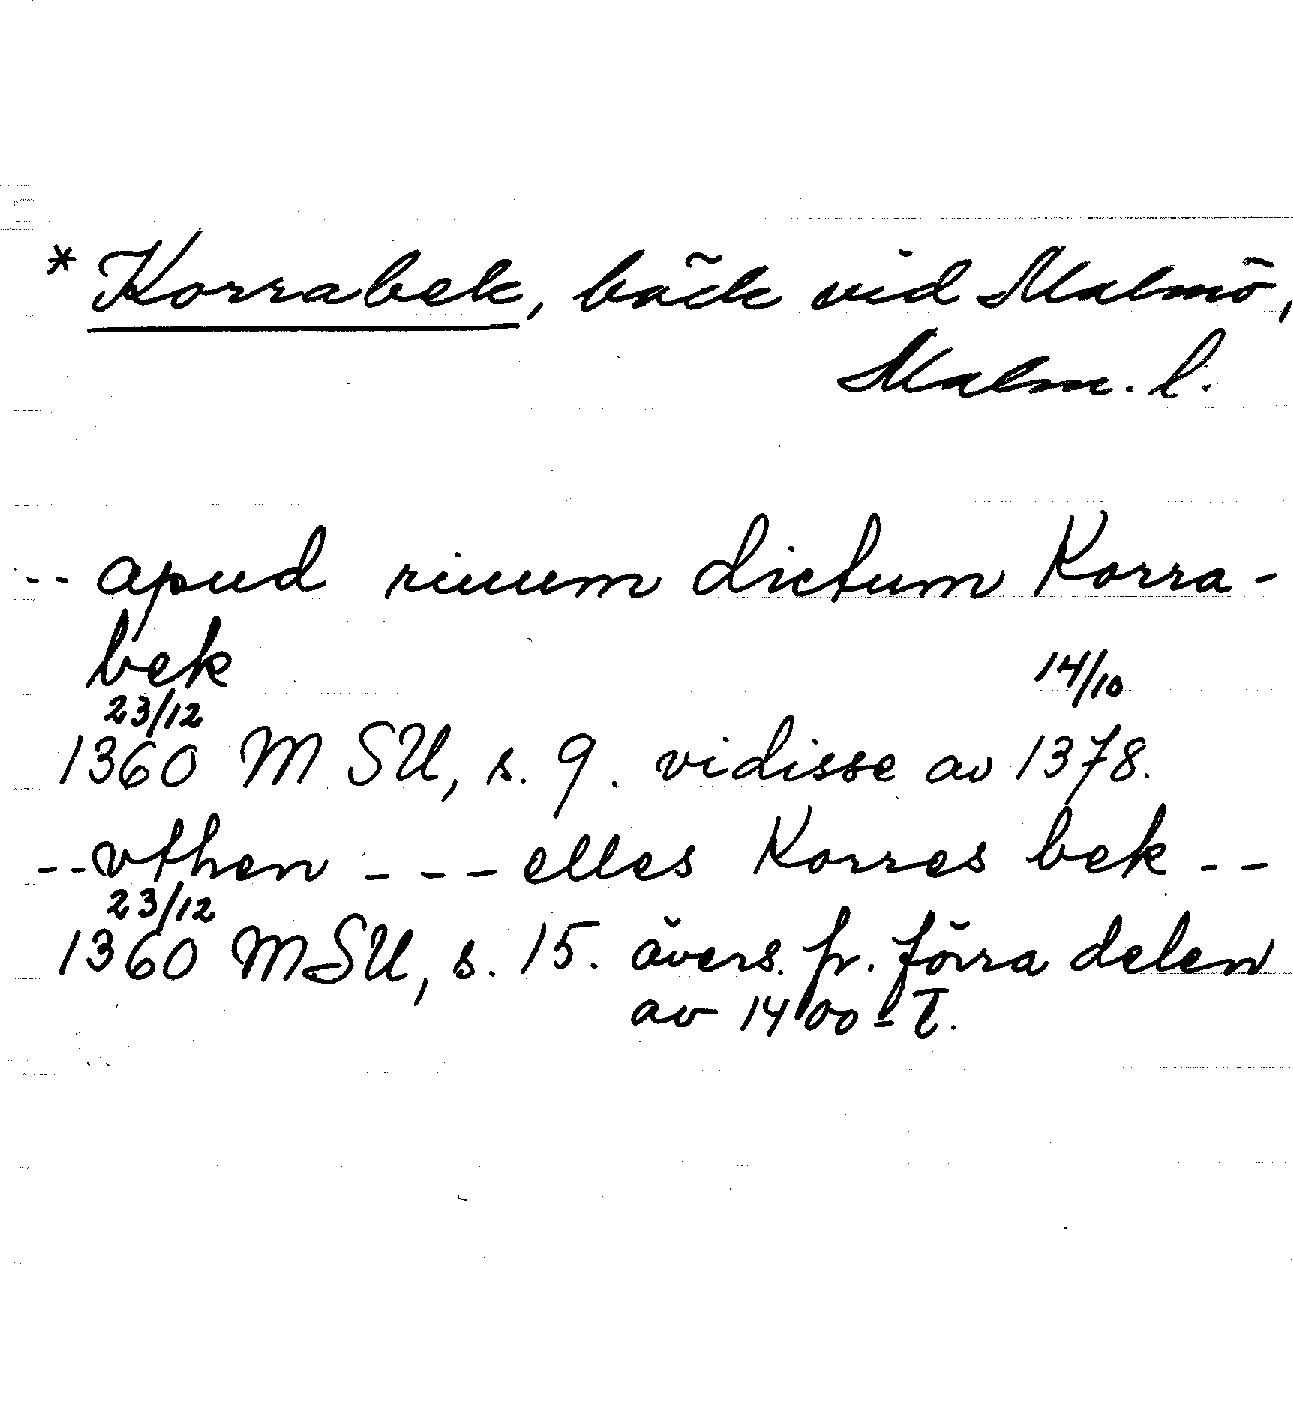 * Korrabek, bäck vid Malmö,
Malm. l.
-- apud riuum dictum Korra-
bek
23/12 14/10
1360 MSU, s. 9. vidisse av 1378.
-- vthen --- elles Korres bek --
23/12
1360 MSU, s. 15. övers. fr. förra delen
av 1400-T.